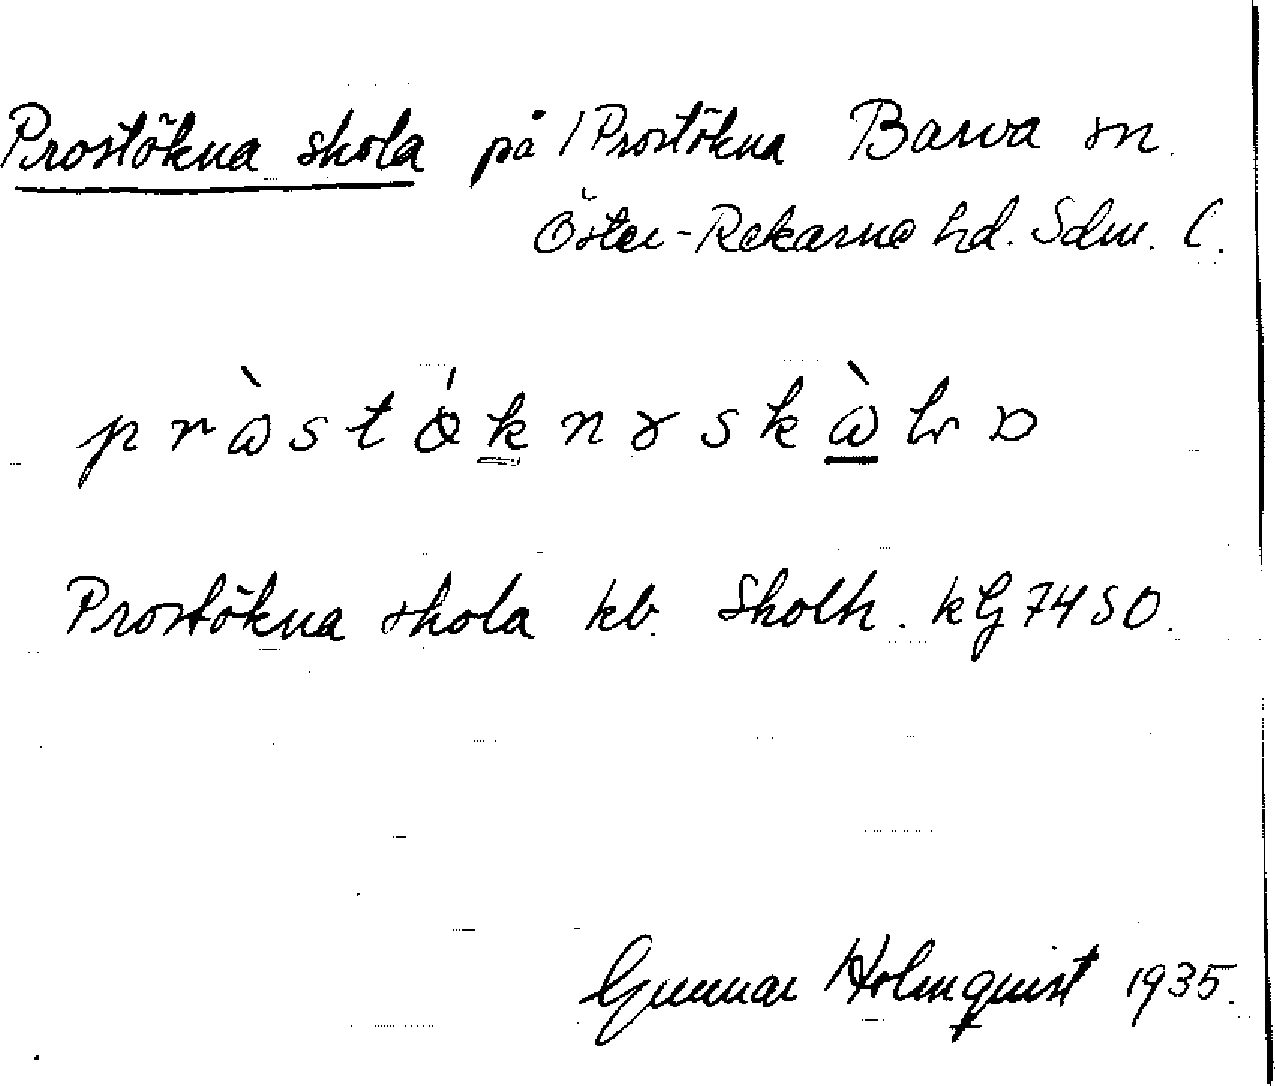 Prostökna skola på / Prostökna Barva sn.
Öster-Rekarne hd. Sdm. l.
pròstöknɤskòlɒ
Prostökna skola kb. Skolh. kG 7450.
Gunnar Holmquist 1935.